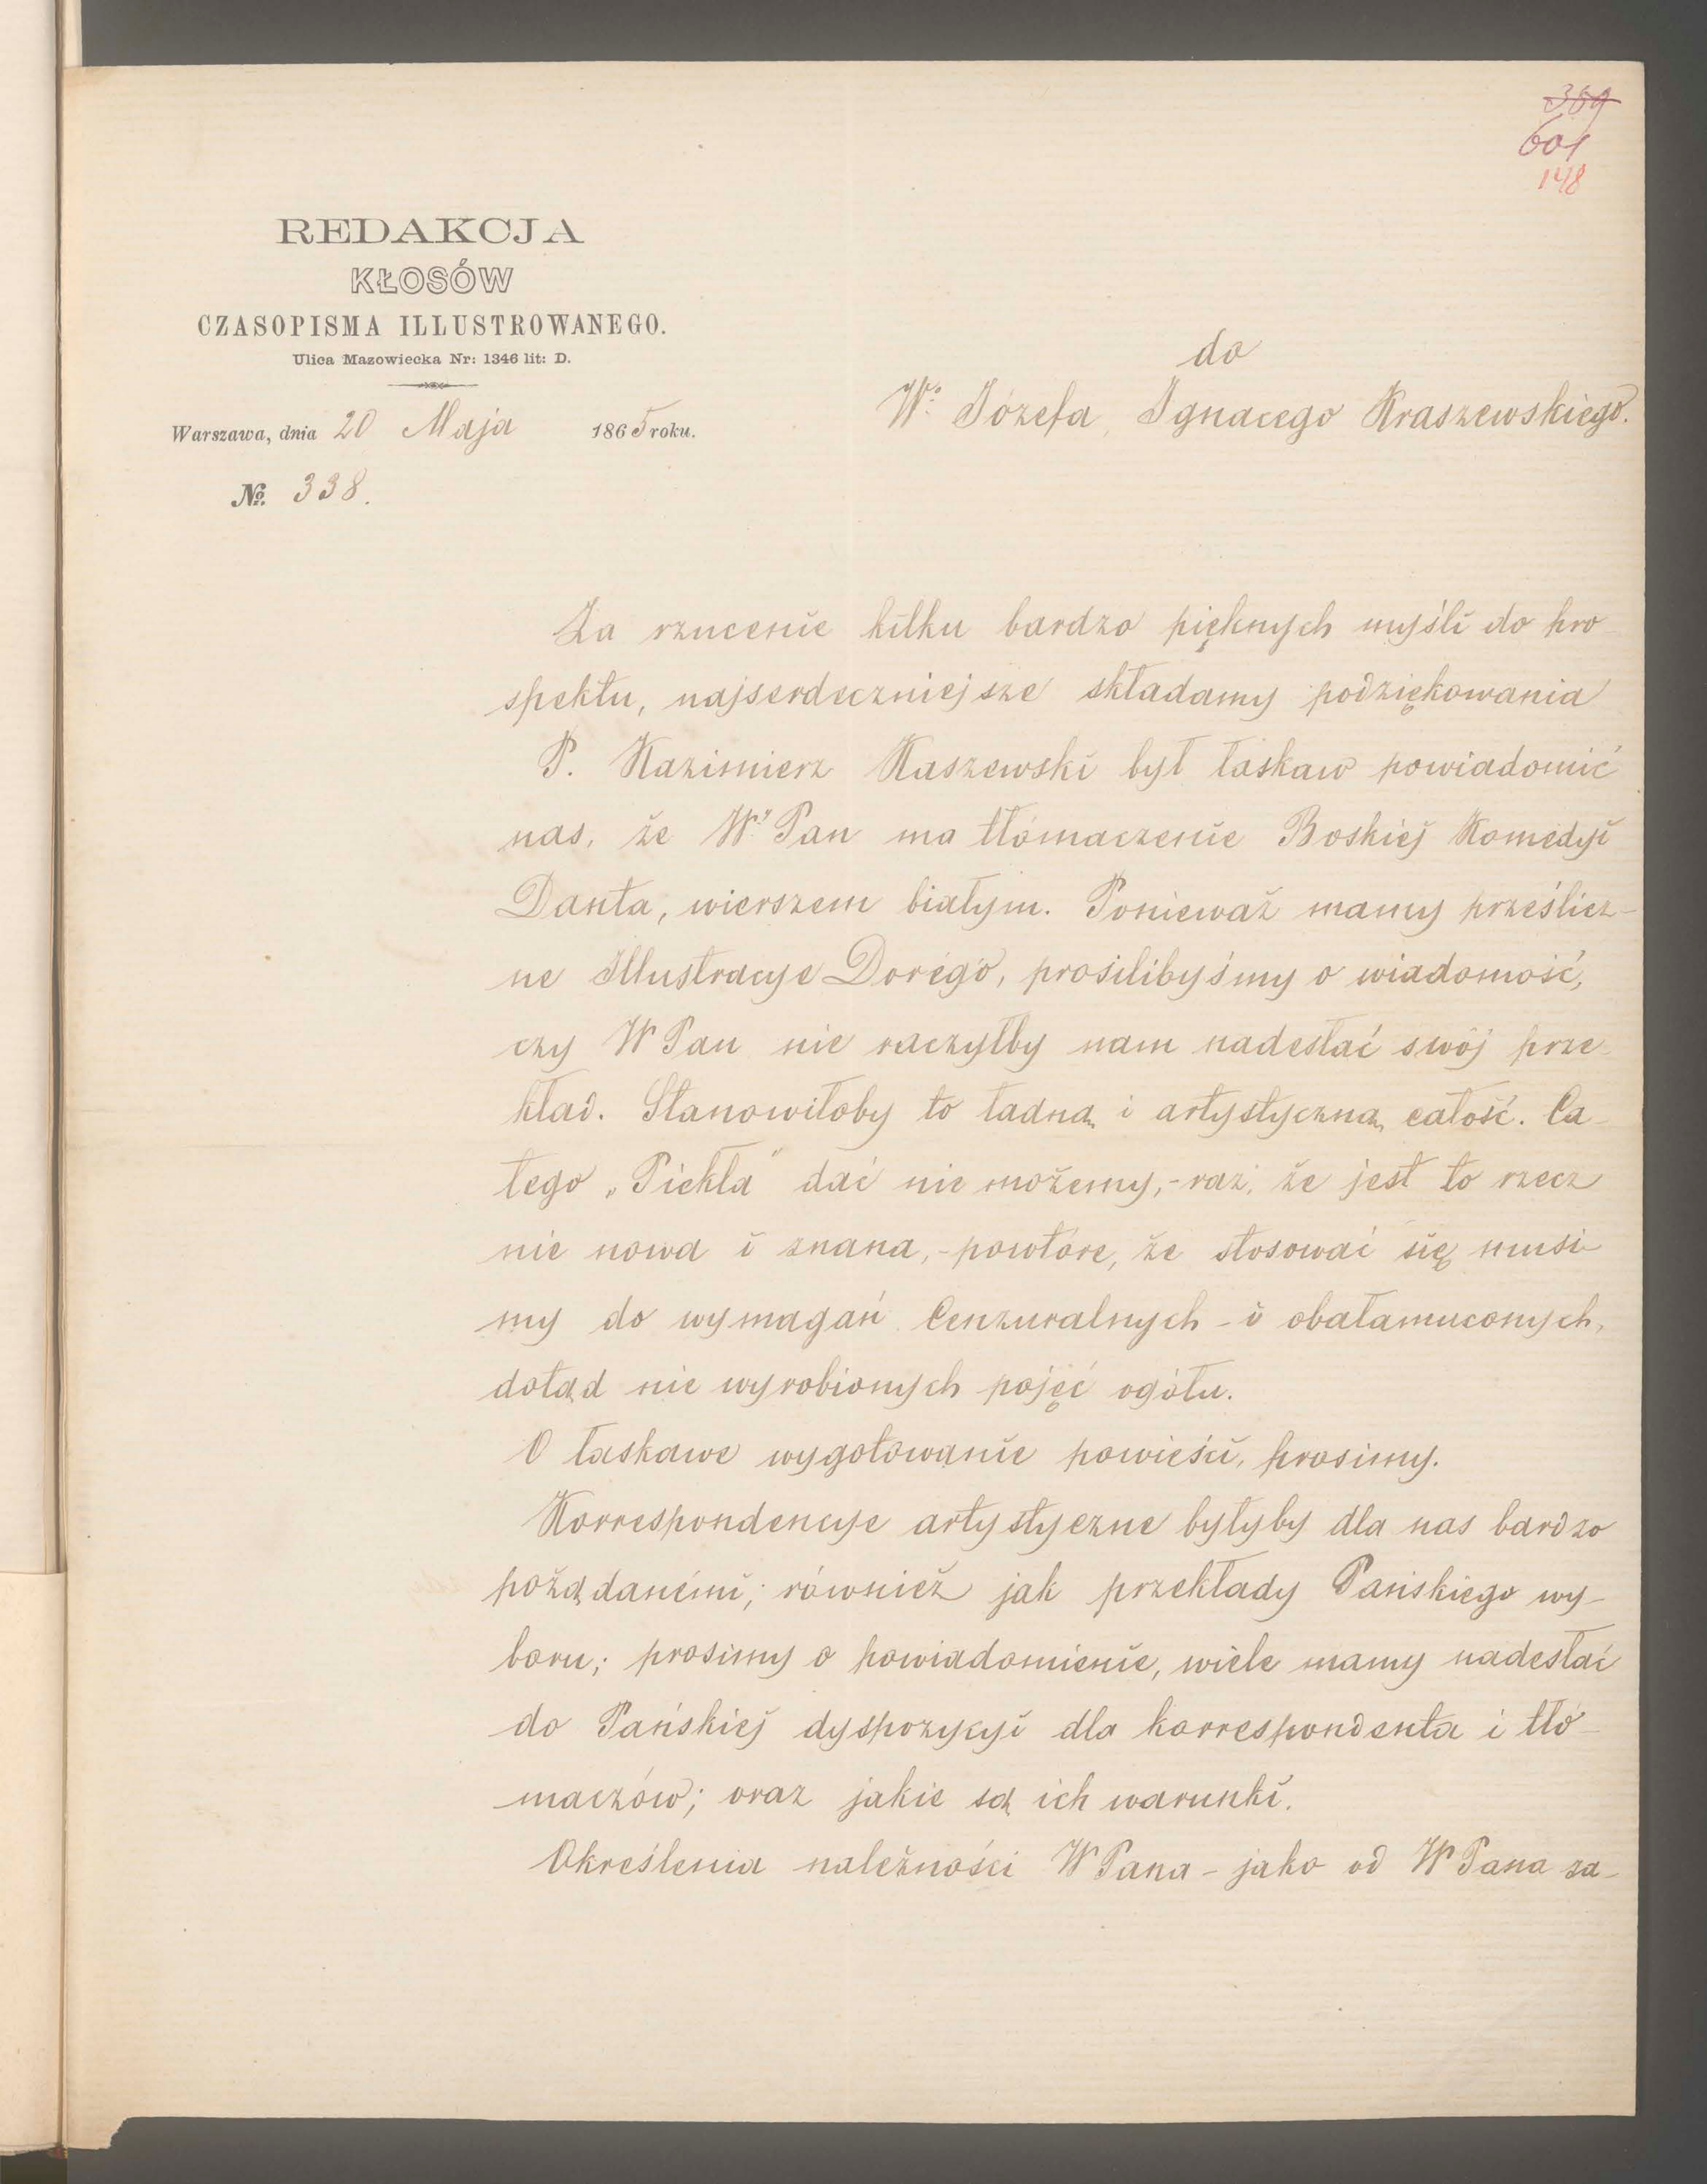 359
601
148
REDAKCJA
KŁOSÓW
CZASOPISMA ILLUSTROWANEGO.
Ulica Mazowiecka Nr: 1346 lit: D.
Warszawa, dnia 20 Maja 1865 roku.
№ 338.
do
Wo. Józefa Ignacego Kraszewskiego.
Za rzucenie kilku bardzo pięknych myśli do pro
spektu, najserdeczniejsze składamy podziękowania
P. Kazimierz Kaszewski był łaskaw powiadomić
nas, że W. Pan ma tłómaczenie Boskiej Komedyi
Danta, wierszem białym. Ponieważ mamy prześlicz-
ne Illustracye Dorégo, prosilibyśmy o wiadomość,
czy WPan nie raczyłby nam nadesłać swój prze-
kład. Stanowiłoby to ładną i artystyczną całość. Ca-
łego „Piekła" dać nie możemy,- raz, że jest to rzecz
nie nowa i znana,- powtóre, że stosować się musi-
my do wymagań Cenzuralnych - i obałamuconych,
dotąd nie wyrobionych pojęć ogółu.
O łaskawe wygotowanie powieści, prosimy.
Korrespondencye artystyczne byłyby dla nas bardzo
pożądanémi; również jak przekłady Pańskiego wy-
boru; prosimy o powiadomienie, wiele mamy nadesłać
do Pańskiej dyspozycyi dla korrespondenta i tłó-
maczów; oraz jakie są ich warunki.
Określenia należności WPana - jako od WPana za-